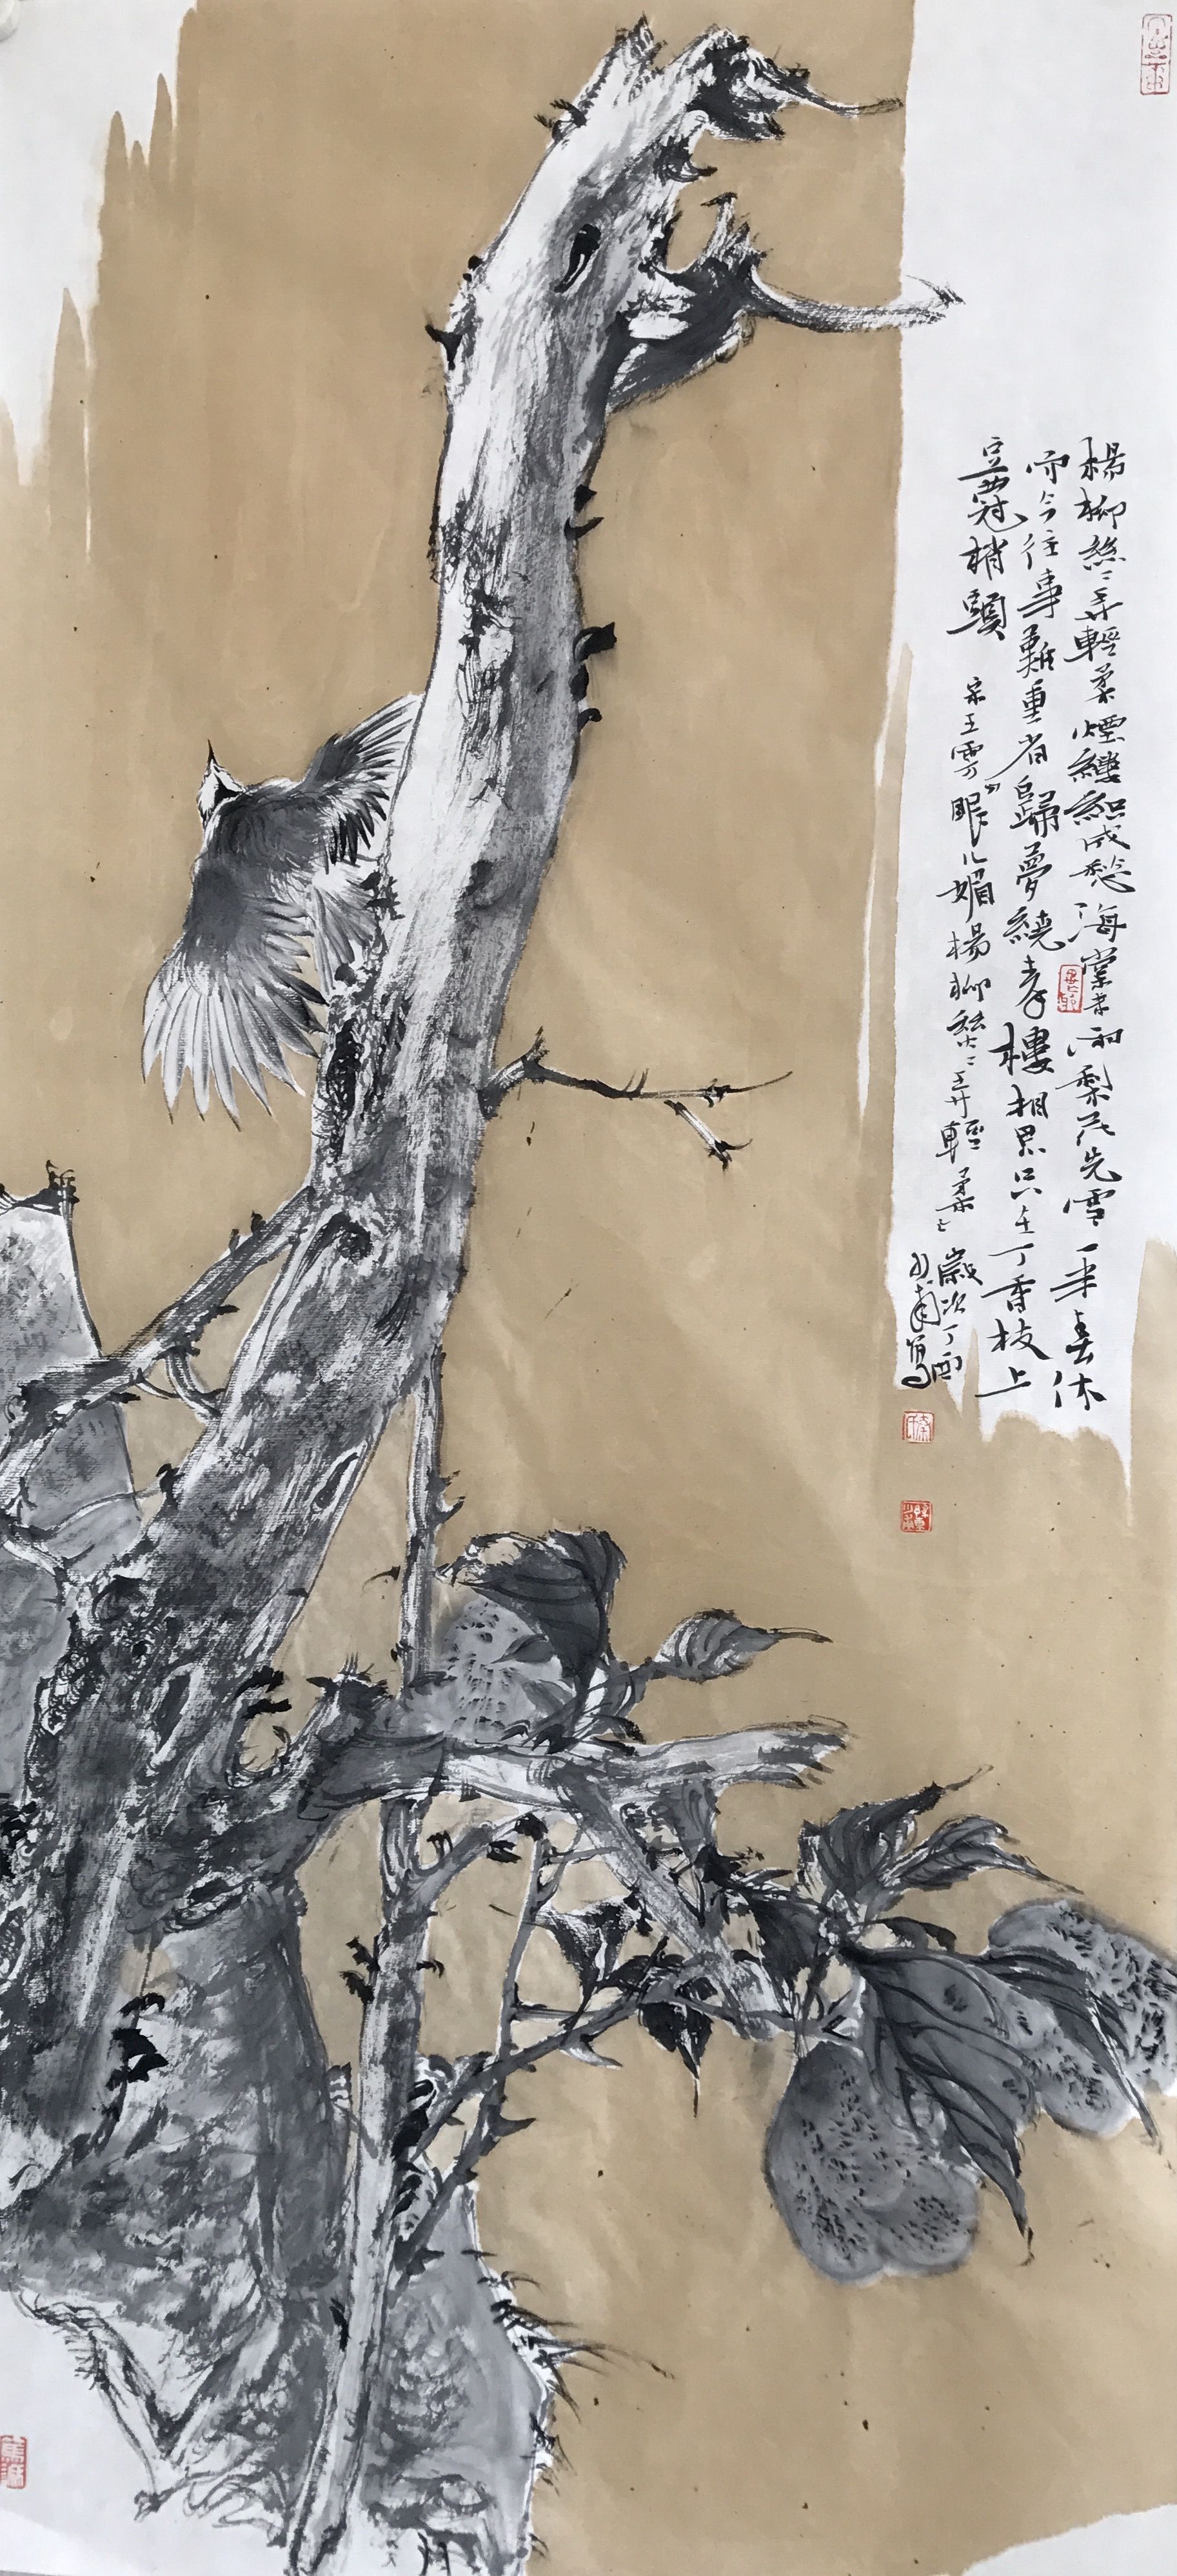 楊柳絲〻弄輕柔煙縷織成愁海棠未雨梨花先雪一半春休
而今往事難重省歸夢繞秦樓相思只在丁香枝上
豆蔻梢頭
宋王雱眼兒媚楊柳絲〻弄輕柔
歲次丁酉